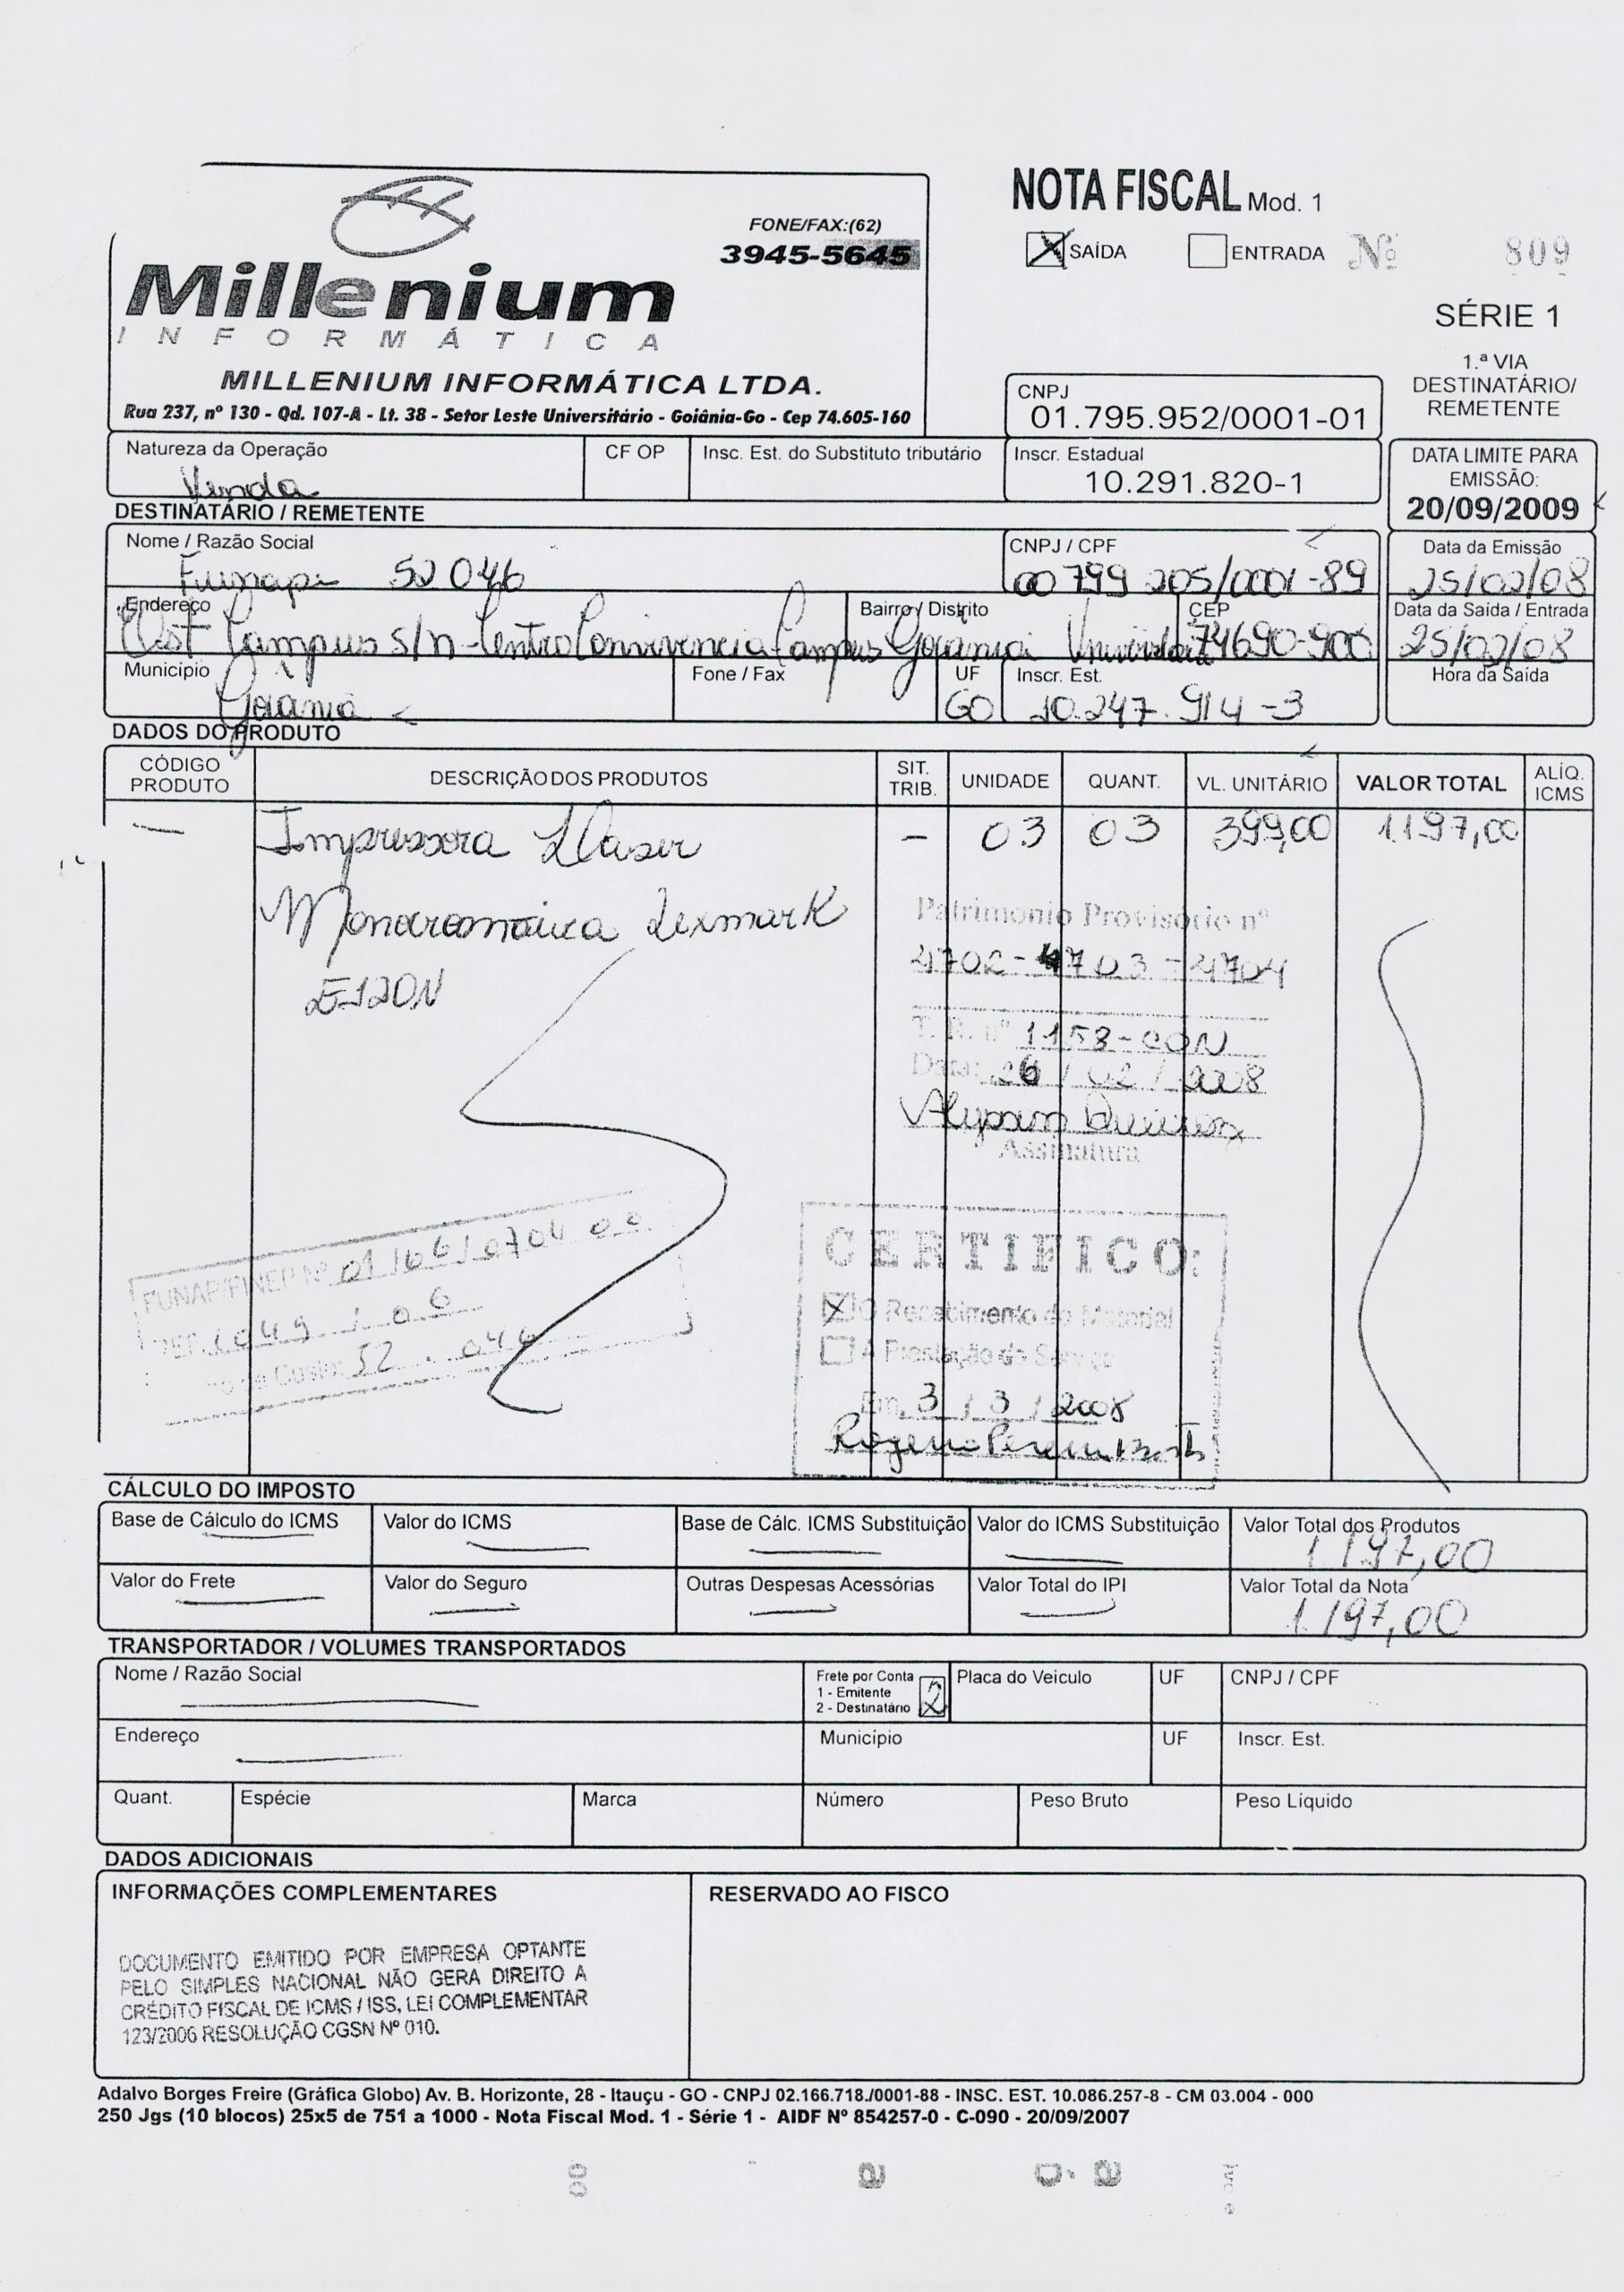 NOTA FISCAL Mod. 1
FONE/FAX:(62)
3945-5645
X SAÍDA ENTRADA Nº 809
Millenium
INFORMÁTICA
SÉRIE 1
1.ª VIA
DESTINATÁRIO/
REMETENTE
MILLENIUM INFORMÁTICA LTDA.
Rua 237, nº 130 - Qd. 107-A - Lt. 38 - Setor Leste Universitário - Goiânia-Go - Cep 74.605-160
CNPJ
01.795.952/0001-01
Natureza da Operação CF OP Insc. Est. do Substituto tributário Inscr. Estadual
Venda 10.291.820-1
DATA LIMITE PARA
EMISSÃO:
20/09/2009
DESTINATÁRIO / REMETENTE
Nome / Razão Social CNPJ / CPF Data da Emissão
Funape 52046 00 799 205/0001-89 25/02/08
Endereço Bairro / Distrito CEP Data da Saída / Entrada
Campus s/n - Centro Convivencia Campus 74690-900 25/02/08
Município Fone / Fax UF Inscr. Est. Hora da Saída
Goiania GO 10.247.914-3
DADOS DO PRODUTO
CÓDIGO PRODUTO DESCRIÇÃO DOS PRODUTOS SIT. TRIB. UNIDADE QUANT. VL. UNITÁRIO VALOR TOTAL ALÍQ. ICMS
— Impressora Laser - 03 03 399,00 1.197,00
Monocromatica Lexmark
E120N
Patrimonio Provisório nº
4702-4703-4704
T. R. nº 1158-CON
Data: 26/02/2008
Assinatura
FUNAP/FINEP Nº 01/06/0704 00
1049/06
de Custo: 52.046
CERTIFICO:
X O Recebimento do Material
A Prestação do Serviço
Em, 3/3/2008
CÁLCULO DO IMPOSTO
Base de Cálculo do ICMS Valor do ICMS Base de Cálc. ICMS Substituição Valor do ICMS Substituição Valor Total dos Produtos
1.197,00
Valor do Frete Valor do Seguro Outras Despesas Acessórias Valor Total do IPI Valor Total da Nota
1.197,00
TRANSPORTADOR / VOLUMES TRANSPORTADOS
Nome / Razão Social Frete por Conta Placa do Veiculo UF CNPJ / CPF
1 - Emitente
2 - Destinatário 2
Endereço Município UF Inscr. Est.
Quant. Espécie Marca Número Peso Bruto Peso Líquido
DADOS ADICIONAIS
INFORMAÇÕES COMPLEMENTARES RESERVADO AO FISCO
DOCUMENTO EMITIDO POR EMPRESA OPTANTE
PELO SIMPLES NACIONAL NÃO GERA DIREITO A
CRÉDITO FISCAL DE ICMS / ISS, LEI COMPLEMENTAR
123/2006 RESOLUÇÃO CGSN Nº 010.
Adalvo Borges Freire (Gráfica Globo) Av. B. Horizonte, 28 - Itauçu - GO - CNPJ 02.166.718./0001-88 - INSC. EST. 10.086.257-8 - CM 03.004 - 000
250 Jgs (10 blocos) 25x5 de 751 a 1000 - Nota Fiscal Mod. 1 - Série 1 - AIDF Nº 854257-0 - C-090 - 20/09/2007